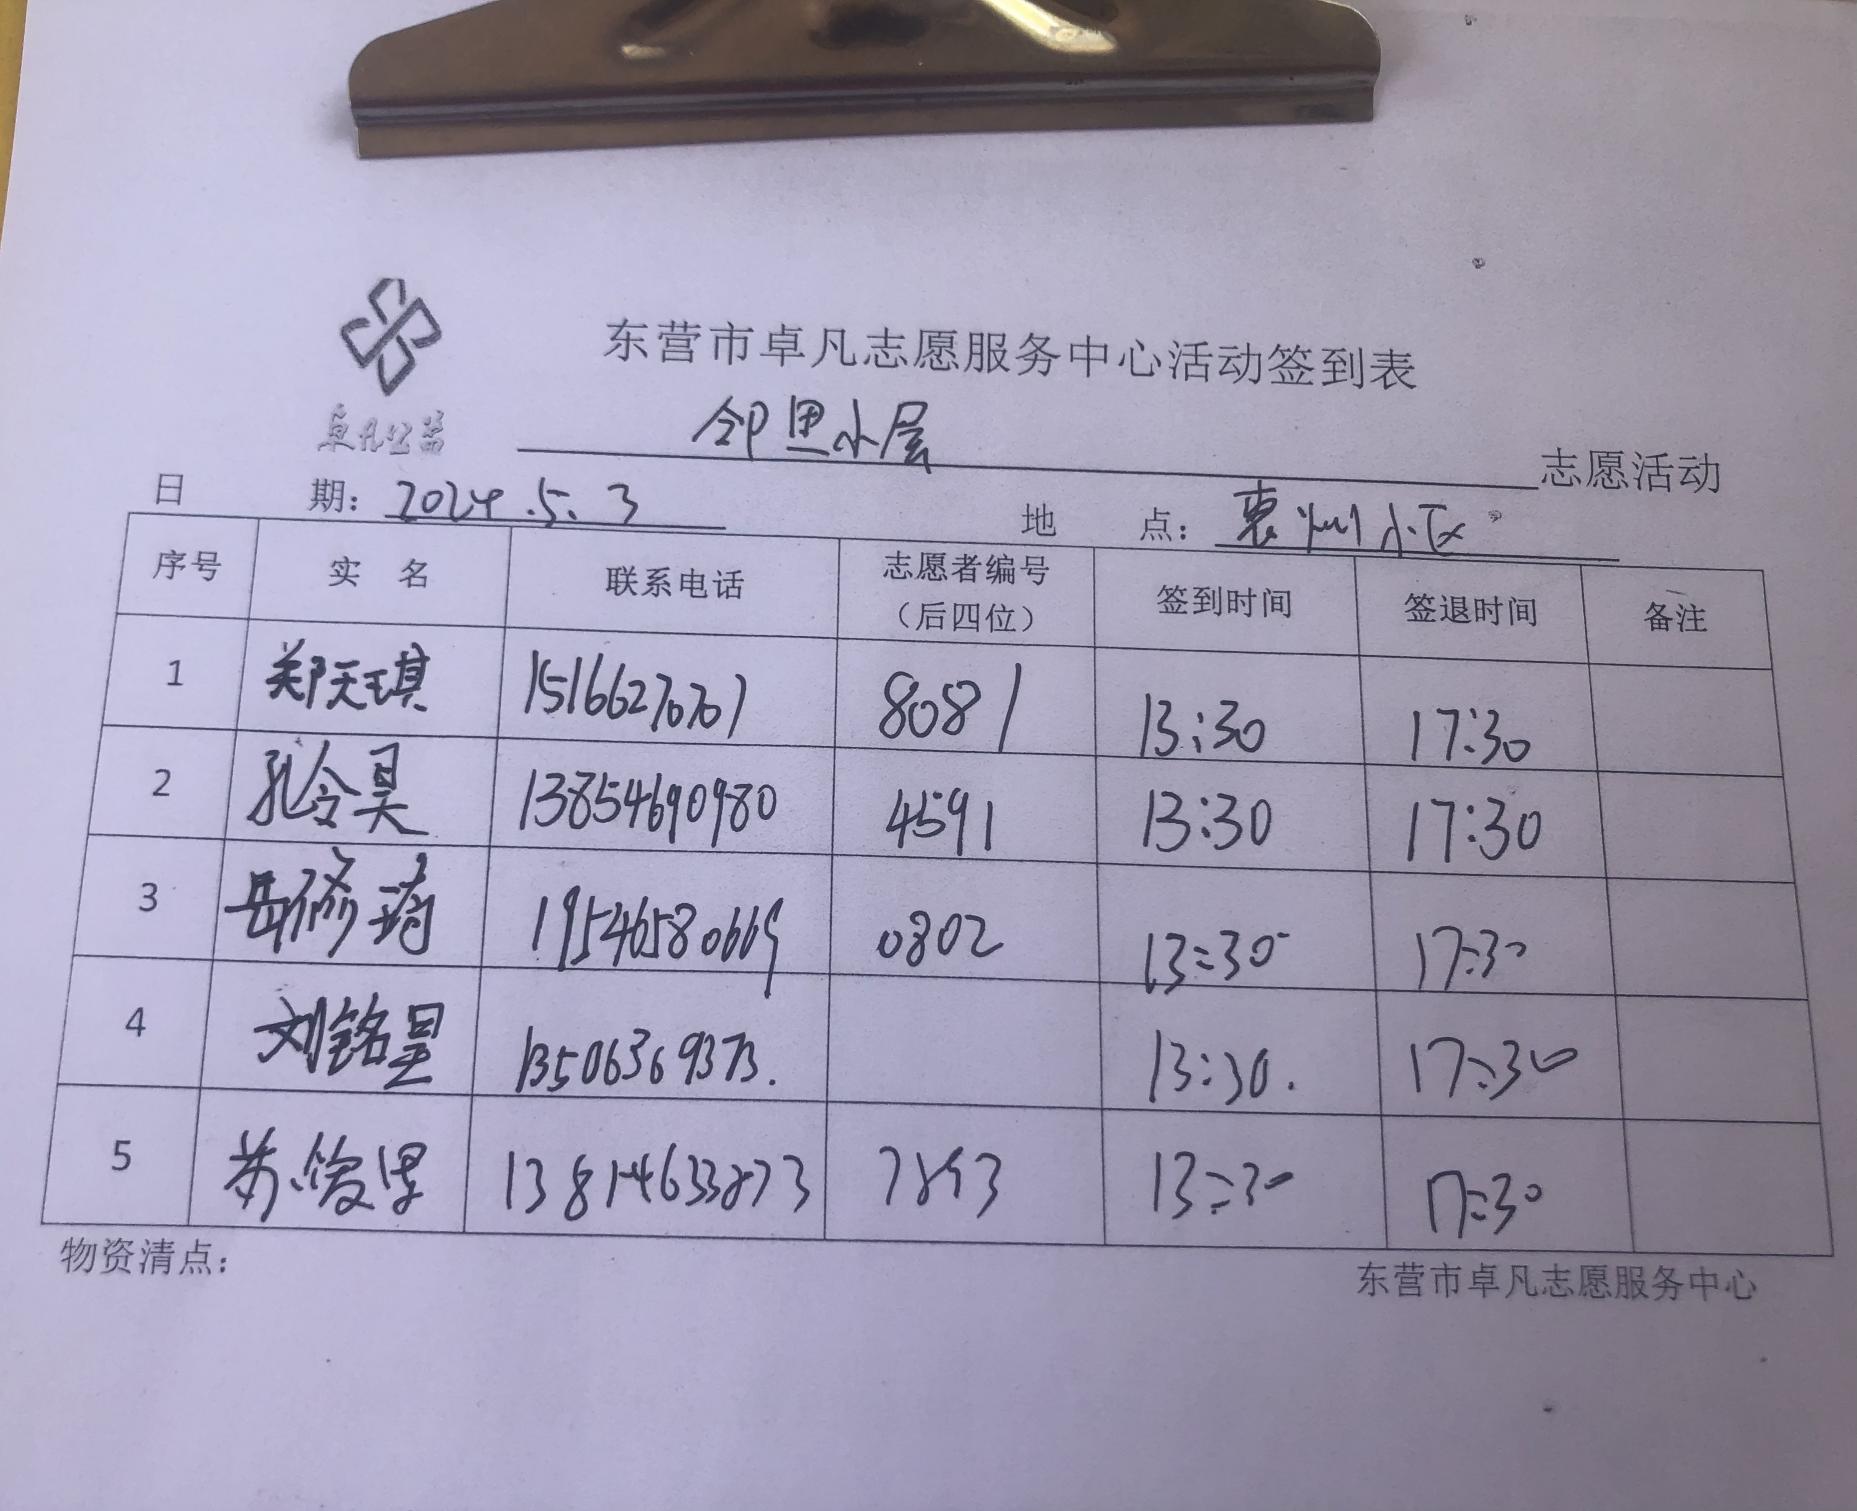 东营市卓凡志愿服务中心活动签到表
卓凡公益
邻里小屋 志愿活动
日 期：2024.5.3 地 点：惠州小区
序号 实 名 联系电话 志愿者编号（后四位） 签到时间 签退时间 备注
1 郑天琪 15166270701 8081 13:30 17:30
2 孔令昊 13854690980 4591 13:30 17:30
3 岳修琦 19546580669 0802 13:30 17:30
4 刘铭昱 13506369373. 13:30. 17:30
5 13814633873 7893 13:30 17:30
物资清点：
东营市卓凡志愿服务中心